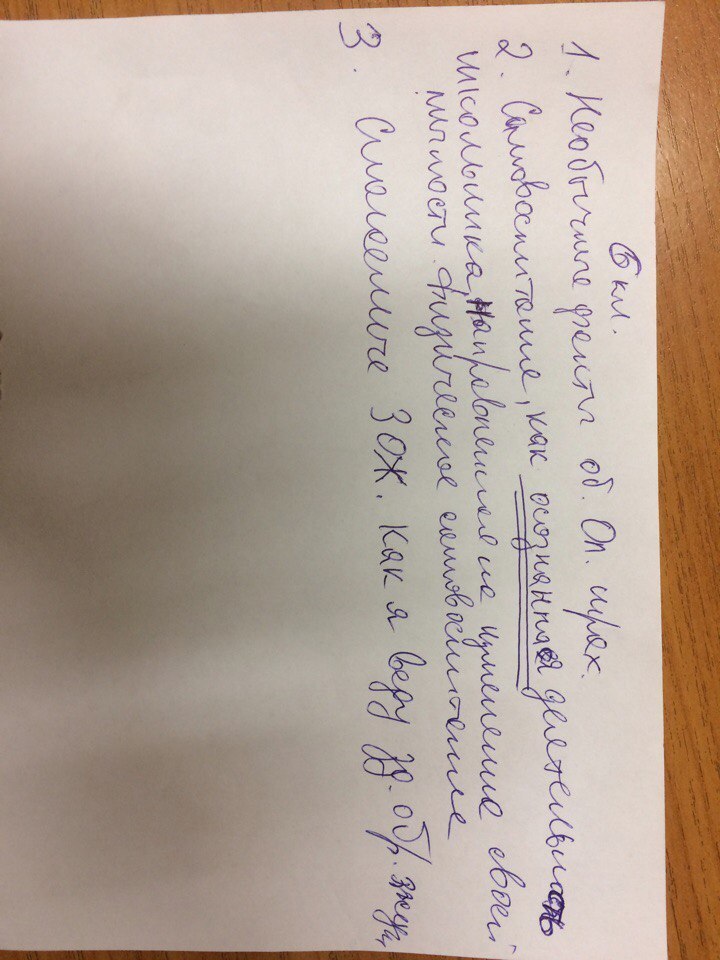 6 кл.
1. Необычные факты об. Ол. играх.
2. Самовоспитание, как осознанная деятельность
школьника, направленная на изменение своей
личности. Физическое самовоспитание
3. Слагаемые ЗОЖ. Как я веду зд. обр. жизни